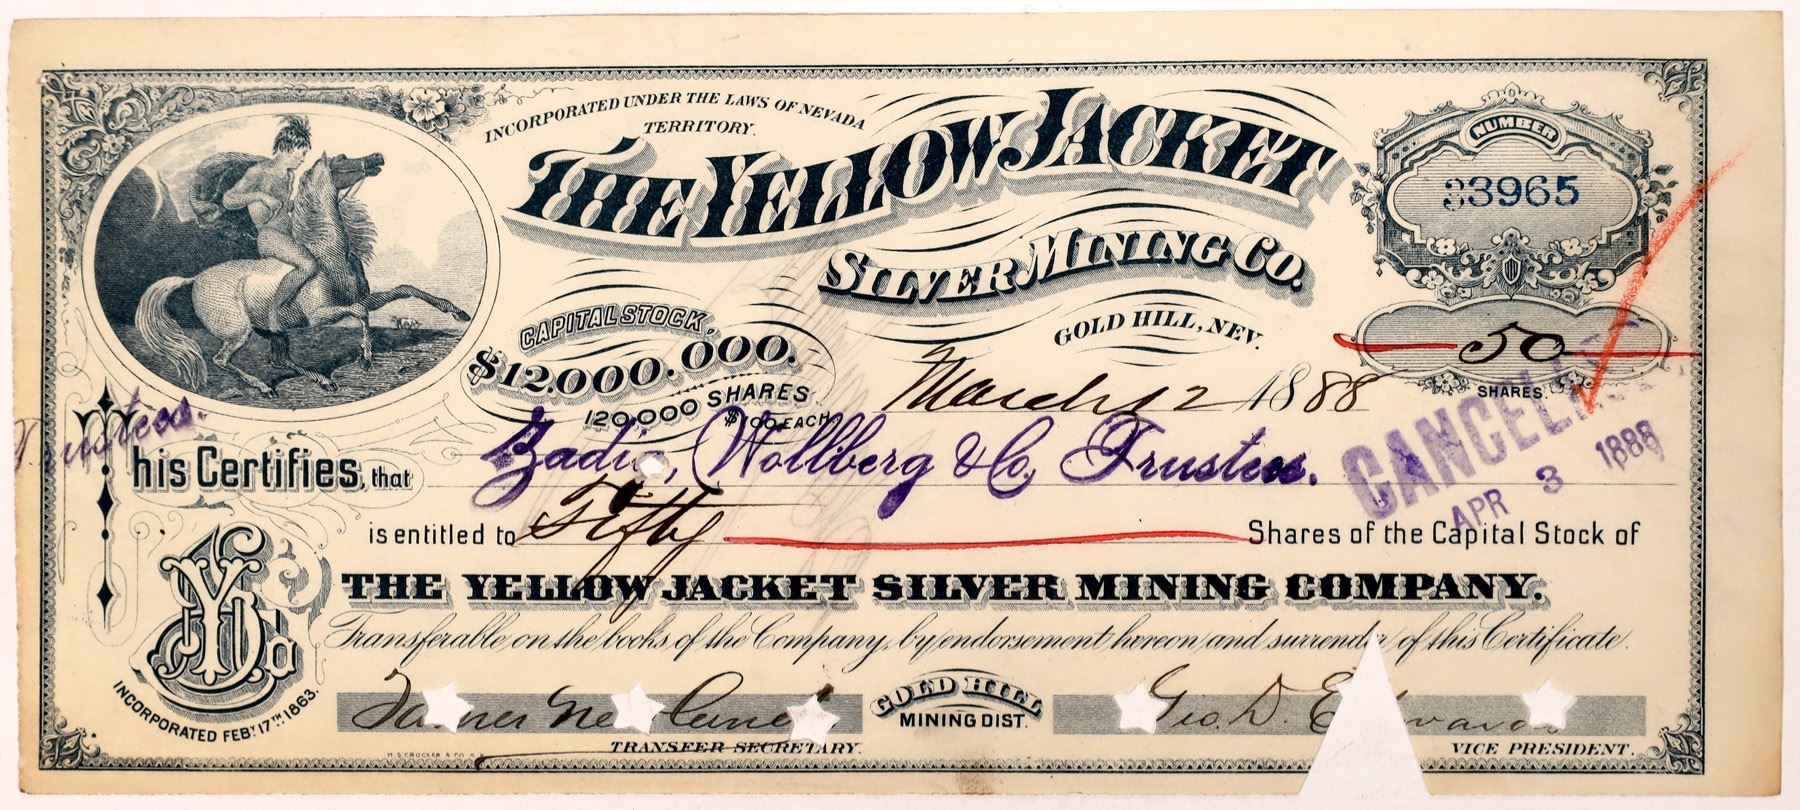 INCORPORATED UNDER THE LAWS OF NEVADA
TERRITORY.
THE YELLOW JACKET
SILVER MINING CO.
GOLD HILL, NEV.
NUMBER
33965
50
SHARES.
CAPITAL STOCK,
$12.000.000.
120,000 SHARES
$100 EACH
March 12 1888
Trustees.
This Certifies, that Zadig, Wollberg & Co, Trustees.
CANCELLED
APR 3 1888
is entitled to Fifty Shares of the Capital Stock of
THE YELLOW JACKET SILVER MINING COMPANY.
Transferable on the books of the Company, by endorsement hereon and surrender of this Certificate.
INCORPORATED FEBY. 17TH 1863.
GOLD HILL
MINING DIST.
Geo. D. Edwards
TRANSFER SECRETARY.
VICE PRESIDENT.
H.S. CROCKER & CO. S.F.